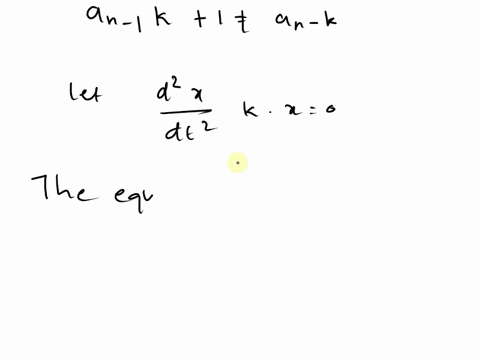 aₙ₋₁ k + 1 ≠ aₙ₋ₖ
let d²x/dt² k · x = 0
The equ